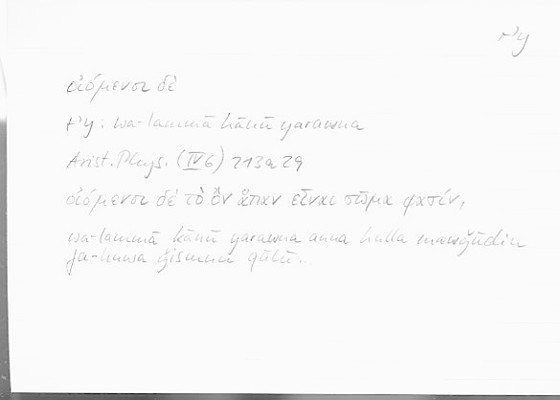 rʾy
οἰόμενοι δὲ
rʾy: wa-lammā kānū yarawna
Arist. Phys. (IV 6) 213a29
οἰόμενοι δὲ τὸ ὂν ἅπαν εἶναι σῶμα φασίν,
wa-lammā kānū yarawna anna kulla mawǧūdin
fa-huwa ǧismun qālū..